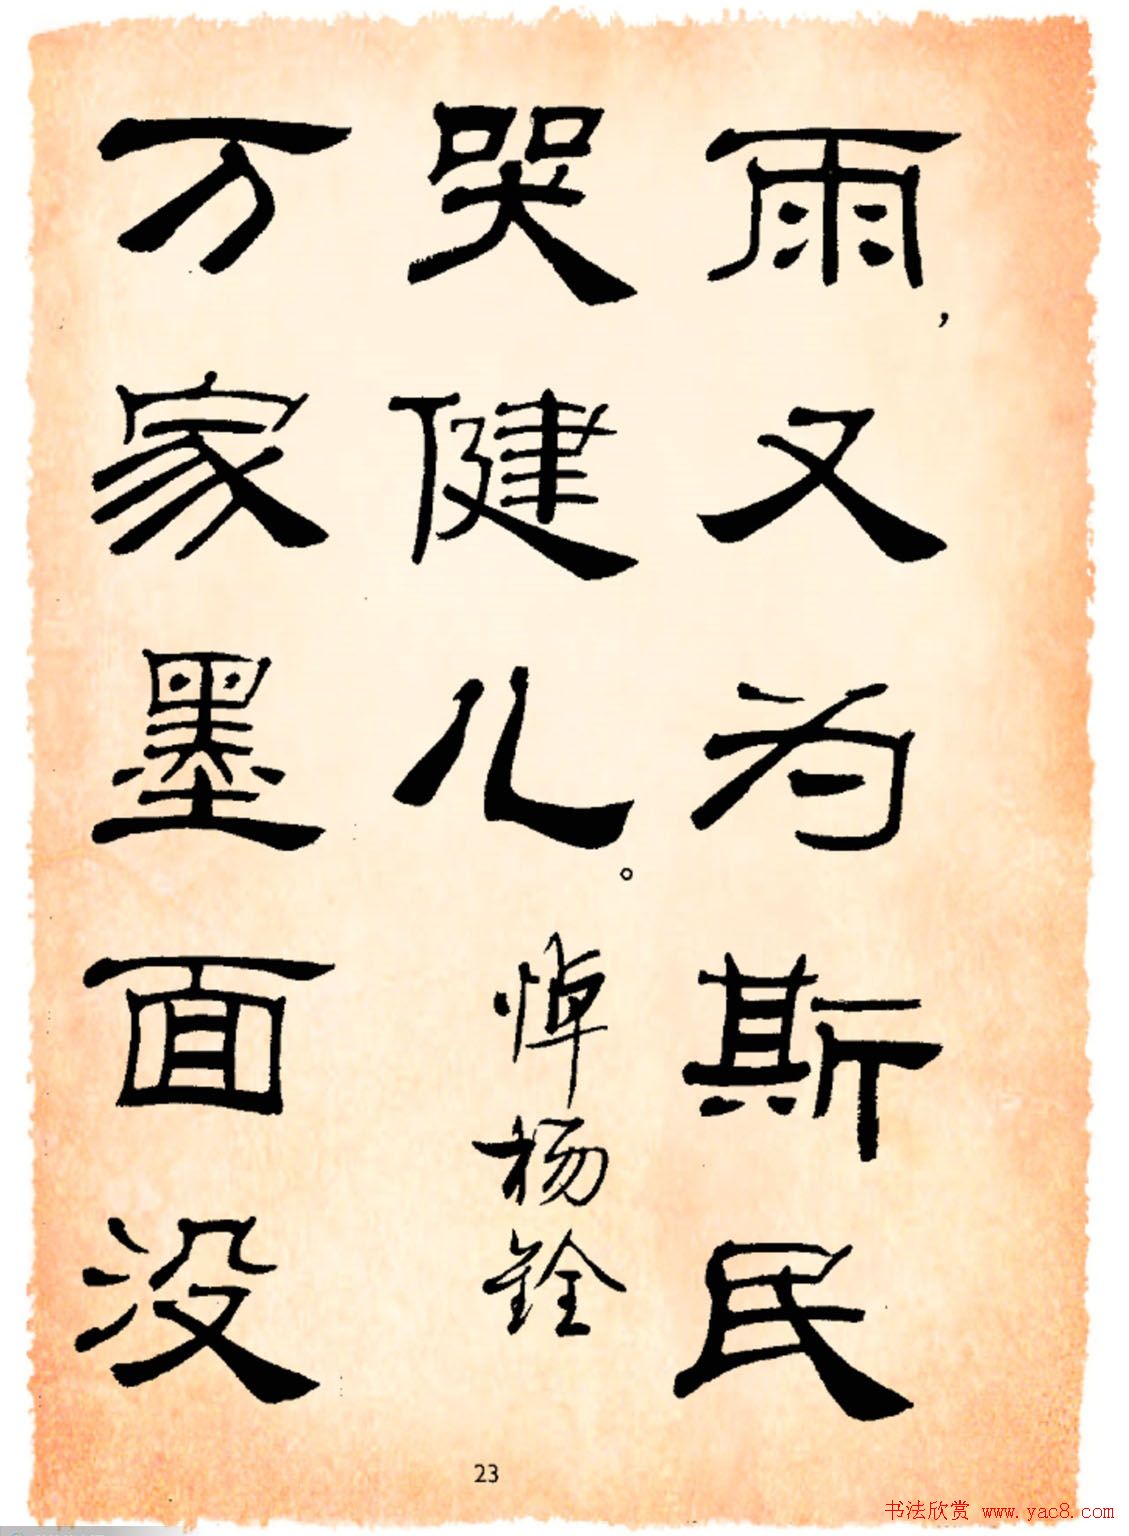 雨，又为斯民
哭健儿。悼杨铨
万家墨面没
23
书法欣赏 www.yac8.com